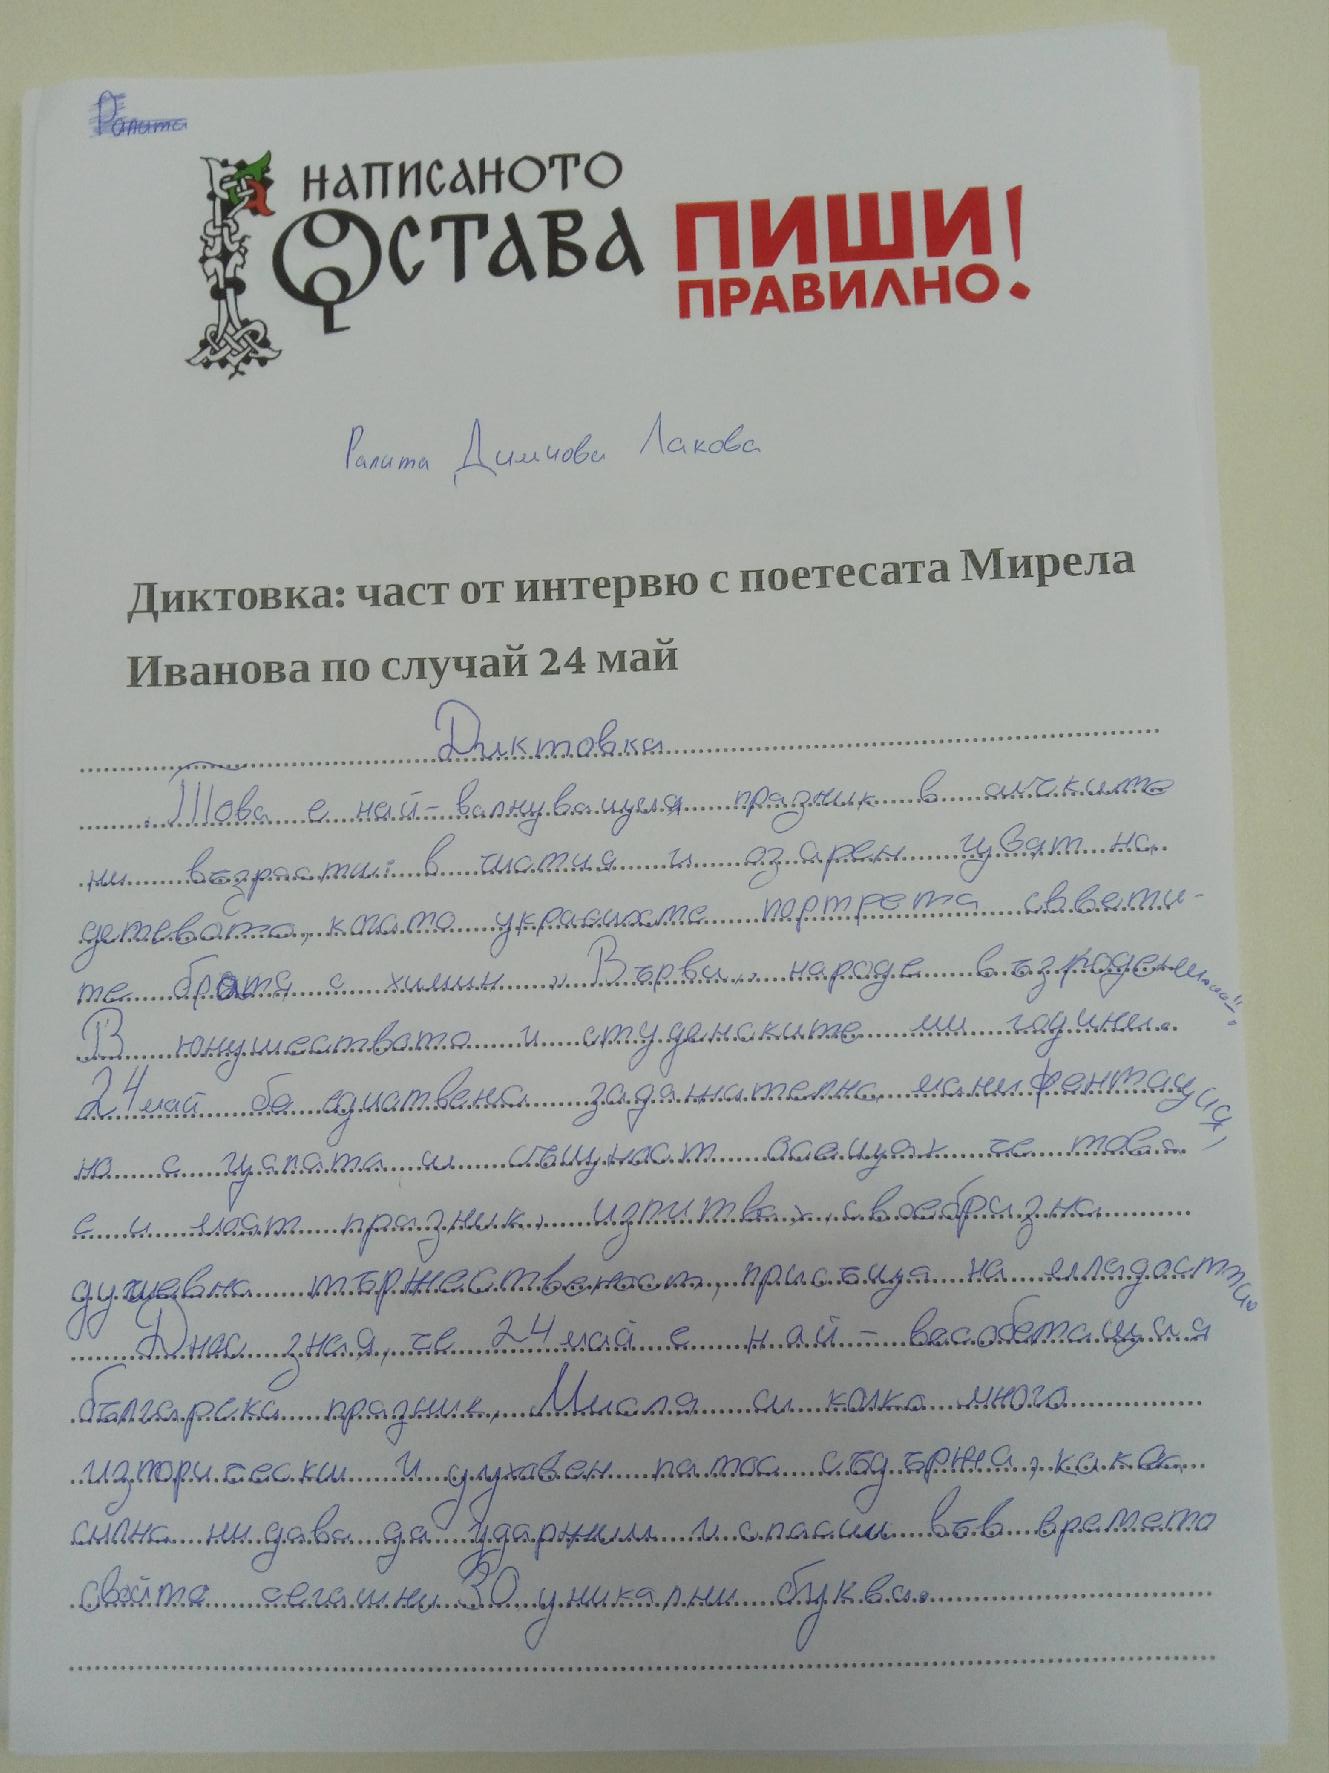 Ралита
НАПИСАНОТО
ОСТАВА
ПИШИ!
ПРАВИЛНО.
Ралита Димчова Лакова
Диктовка: част от интервю с поетесата Мирела
Иванова по случай 24 май
Диктовка
Това е най-валнуващия празник в сичките
ни възрасти: в чистия и озарен цват на
детевото, като украсихме портрета свети-
те братя с химин „Върви, народе възродени".
В юнушествата и студенските ми години
24 май бе едиствена задажателна манифентация,
на с цялата си същуност осещах че това
е и моят празник, изпитвах своебразна
душевна тържественост, присъща на младостта.
Днес зная, че 24 май е най-всеобетащия
български празник, Мисля си колко много
изторически и духовен патос съдържа, каква
силна ни дава да удържим и спасим във времето
своите сегашни 30 уникални букви.